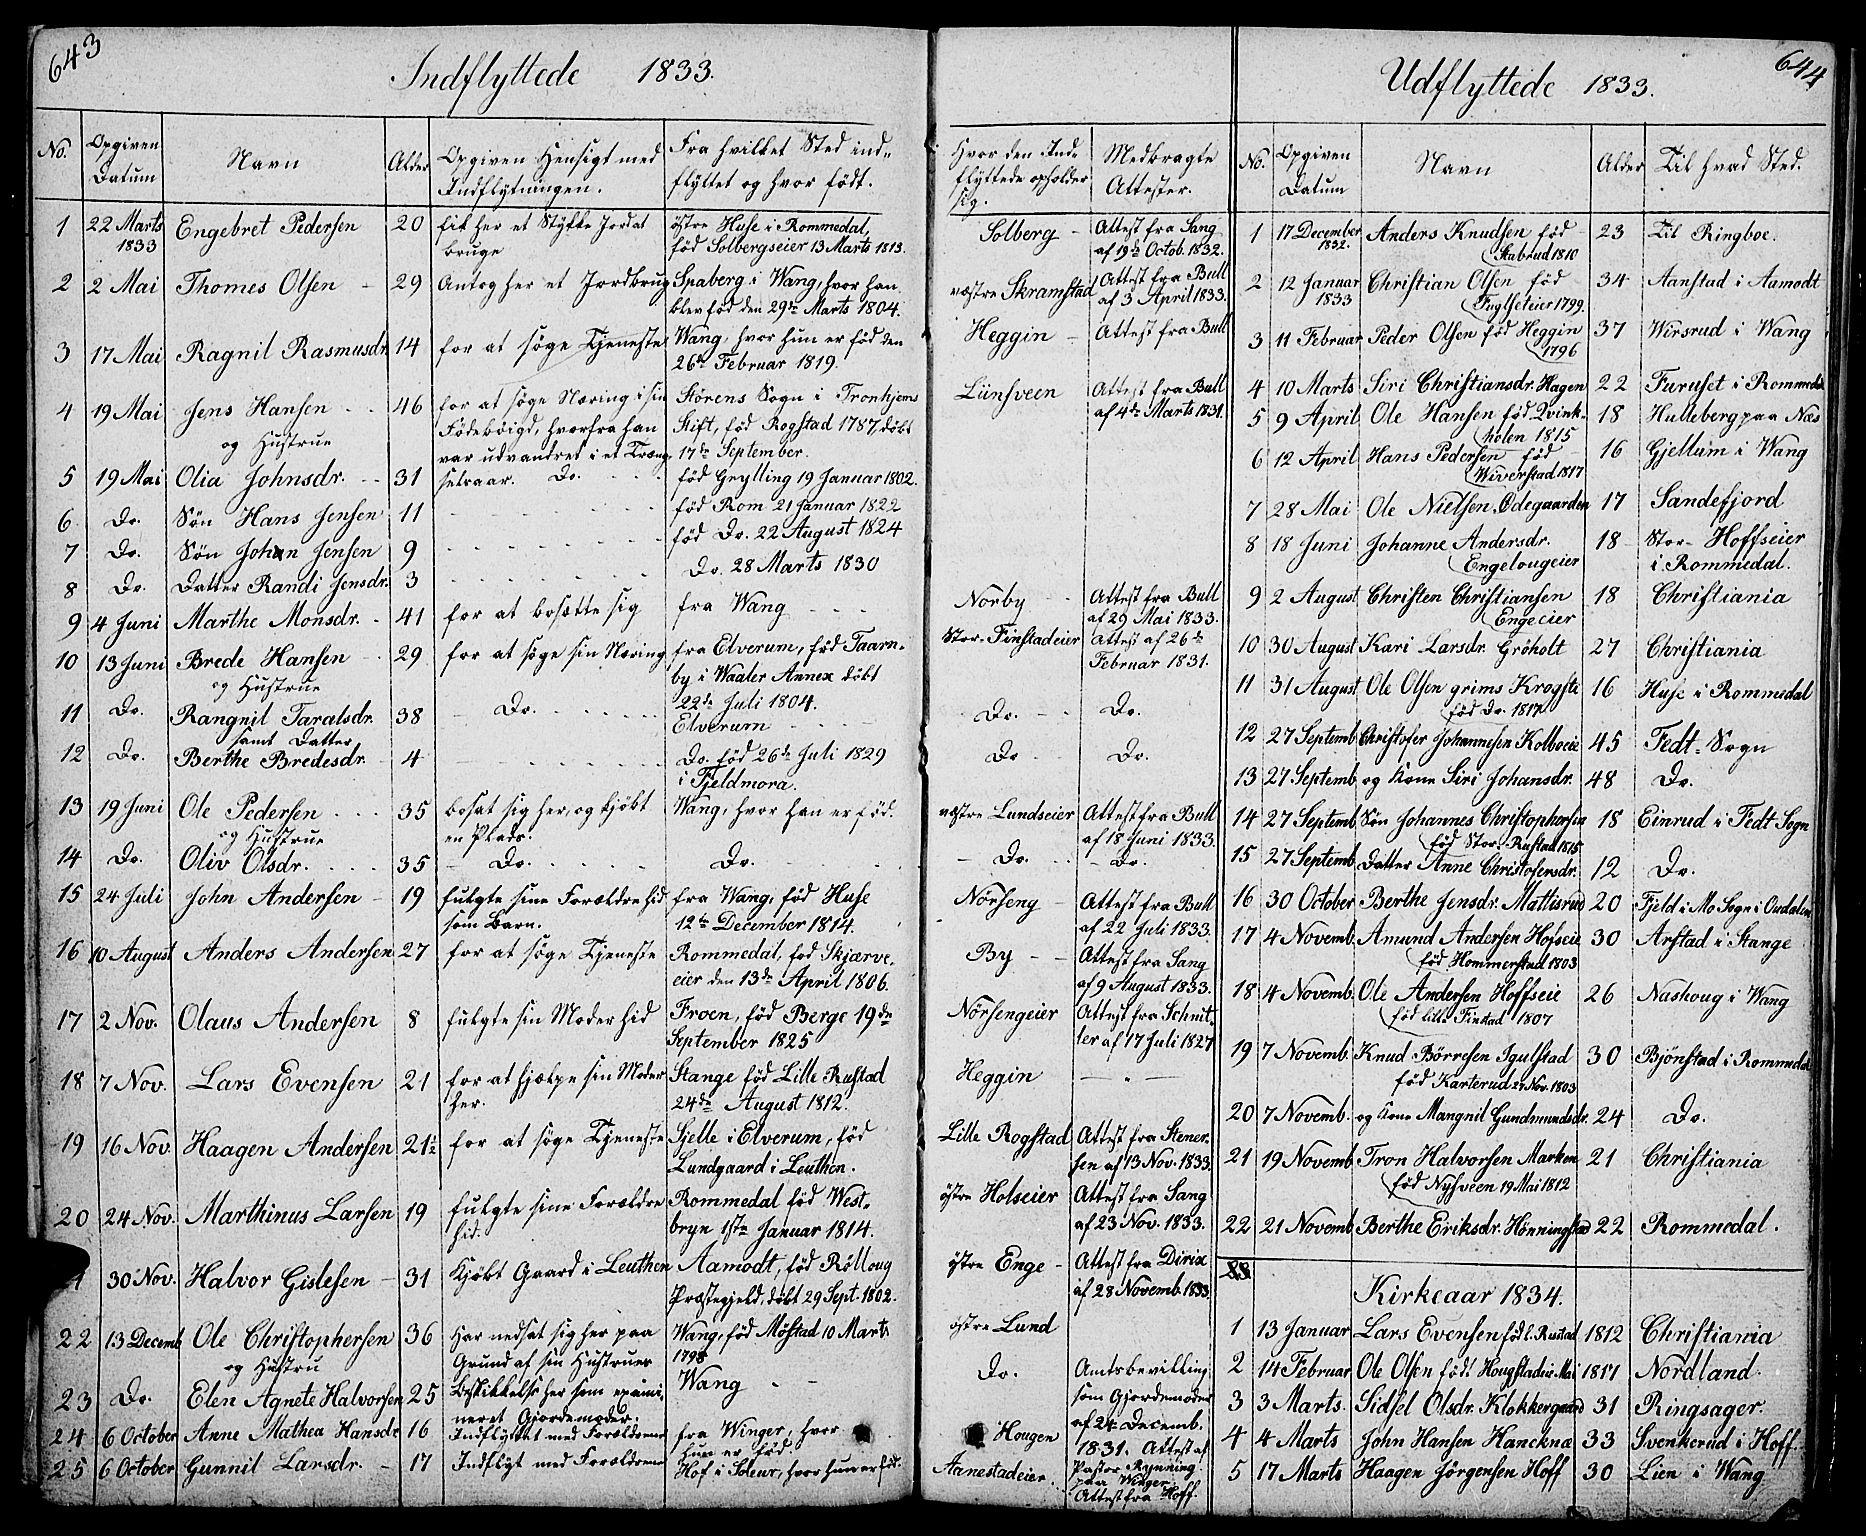 643
Indflyttede 1833.
No. Opgiven Datum Navn Alder Opgiven Hensigt med Indflytningen. Fra hvilket Sted indflyttet og hvor født. Hvor den Indflyttede opholder sig. Medbragte Attester.
1 22 Marts 1833 Engebret Pedersen 20 fik her et Stykke Jord at bruge østre Huse i Rommedal, fød Solbergseier 13 Marts 1813. Solberg - Attest fra Sang af 19de Octob. 1832.
2 2 Mai Thomes Olsen - 29 Antog her et Jordbrug Spaberg i Wang, hvor han blev fød den 29de Marts 1804. væstre Skramstad Attest fra Bull af 3 April 1833.
3 17 Mai Ragnil Rasmusdr. 14 for at søge Tjeneste Wang, hvor hun er fød den 26de Februar 1819. Heggin - Attest fra Bull
4 19 Mai Jens Hansen - - 46 for at søge Næring i sin Fødebøigd, hvorfra han var udvandret i et Trængselsaar. Störens Sogn i Tronhjems Stift, fød Rogstad 1787, døbt 17de September. Lünsveen Attest fra Bull af 4de Marts 1831.
og Hustrue
5 19 Mai Olia Johnsdr. - - 31 Do. fød Grylling 19 Januar 1802.
6 Do. Søn Hans Jensen 11 fød Rom 21 Januar 1822
7 Do. Søn Johan Jensen 9 fød Do. 22 August 1824
8 Do. Datter Randi Jensdr. 3 Do. 28 Marts 1830
9 4 Juni Marthe Monsdr. - 41 for at bosætte sig fra Wang Norby - - Attest fra Bull af 29 Mai 1833.
10 13 Juni Brede Hansen - - 29 for at søge sin Næring fra Elverum, fød Taarnby i Waaler Annex døbt 22de Juli 1804. Stor-Finstadeier Attest af 26de Februar 1831.
og Hustrue
11 Do. Rangnil Taralsdr. 38 - Do. Elverum Do. - - Do.
samt Datter
12 Do. Berthe Bredesdr. - 4 Do. fød 26de Juli 1829 i Fjeldmora. Do - - Do.
13 19 Juni Ole Pedersen . . . 35 bosat sig her, og kjøbt en Plads. Wang, hvor han er fød. væstre Lundseier Attest fra Bull af 18 Juni 1833.
og Hustrue
14 Do. Oliv Olsdr. . . . . 35 - Do. Do. - Do. - Do.
15 24 Juli John Andersen - 19 fulgte sine Forældre hid som Barn. fra Wang, fød Huse 12te December 1814. Nørseng - Attest fra Bull af 22 Juli 1833.
16 10 August Anders Andersen 27 for at søge Tjeneste Rommedal, fød Skjærveeier den 13de April 1806. By - - Attest fra Sang af 9 August 1833.
17 2 Nov. Olaus Andersen 8 fulgte sin Moder hid Froen, fød Berge 19de September 1825 Nørsengeier Attest fra Schnitler af 17 Juli 1827
18 7 Nov. Lars Evensen 21 for at hjælpe sin Moder her. Stange fød Lille Rustad 24de August 1812. Heggin - " -
19 16 Nov. Haagen Andersen 21½ for at søge Tjeneste Sjelle i Elverum, fød Lundgaard i Leuthen. Lille Rogstad Attest fra Stenersen af 13 Nov. 1833.
20 24 Nov. Marthinus Larsen 19 fulgte sine Forældre hid. Rommedal fød Westbryn 1ste Januar 1814. østre Holseier Attest fra Sang af 23 Nov. 1833.
30 Nov. Halvor Gislesen - 31 Kjøbt Gaard i Leuthen Aamodt, fød Rölloug Præstegjeld, døbt 29 Sept. 1802. østre Enge - Attest fra Dirix af 28 Novemb. 1833.
22 13 Decemb Ole Christophersen 36 Har nedsat sig her paa Grund af sin Hustrues Beskikkelse her som examineret Gjordemoder. Wang, fød Møstad 10 Marts 1798 østre Lund
og Hustru
23 Do. Elen Agnete Halvorsen 25 Wang - - Do. Amtsbevilling som Gjordemoder af 24 Decemb. 1831.
24 6 October Anne Mathea Hansdr 16 Indflyttet med Forældrene fra Winger, hvor hun er fød Hougen Attest af Pastor Rynning paa Winger
25 6 October Gunnil Larsdr. - 17 Indflyt med Forældrene Hof i Soleur, hvor hun er fød. Aanestadeier. Attest fra Hoff.
644
Udflyttede 1833.
No. Opgiven Datum Navn Alder Til hvad Sted.
1 17 December 1832. Anders Knudsen fød Stabrud 1810 23 Til Ringboe.
2 12 Januar 1833 Christian Olsen fød Fuglseteier 1799. 34 Aanstad i Aamodt
3 11 Februar Peder Olsen fød Heggin 1796 37 Wirsrud i Wang
4 10 Marts Siri Christiansdr. Hagen 22 Furuset i Rommedal
5 9 April Ole Hansen fød Qvinkholen 1815 18 Hulleberg paa Næs
6 12 April Hans Pedersen fød Wiverstad 1817 16 Gjellum i Wang
7 28 Mai Ole Nielsen Ødegaarden 17 Sandefjord
8 18 Juni Johanne Andersdr. Engelougeier 18 Stor- Hoffseier i Rommedal.
9 2 August Christen Christiansen Engeeier 18 Christiania
10 30 August Kari Larsdr. Gröholt 27 Christiania
11 31 August Ole Olsen grims Krogste fød Do. 1817 16 Huse i Rommedal
12 27 Septemb Christofer Johannesen Kolboeie 45 Fedt- Sogn
13 27 Septemb. og Kone Siri Johansdr. 48 Do.
14 27 Septemb. Søn Johannes Christophersen fød Stor-Rustad 1815 18 Einrud i Fedt Sogn
15 27 Septemb. Datter Anne Christofersdr. 12 Do.
16 30 October Berthe Jensdr. Mattisrud 20 Fjeld i Mo Sogn i Oudalen
17 4 Novemb. Amund Andersen Hofseie fød Hommerstad 1803 30 Arstad i Stange
18 4 Novemb. Ole Andersen Hoffseie fød lille Finstad 1807 26 Nashoug i Wang
19 7 Novemb. Knud Börresen Igulstad fød Karterud 27 Nov. 1803 30 Bjönstad i Rommedal
20 7 Novemb. og Kone Mangnil Gundmundsdr. 24 Do.
21 19 Novemb. Tron Halvorsen Marken fød Nysveen 19 Mai 1812 21 Christiania
22 21 Novemb Berthe Eriksdr. Hönningstad 22 Rommedal.
Kirkeaar 1834.
1 13 Januar Lars Evensen fød l. Rustad 1812 Christiania
2 14 Februar Ole Olsen fød Hougstadeie Mai 1817 Nordland.
3 3 Marts. Sidsel Olsdr. Klokkergaard 31 Ringsager.
4 4 Marts John Hansen Hancknæ 33 Svenkerud i Hoff.
5 17 Marts Haagen Jörgensen Hoff 30 Lien i Wang